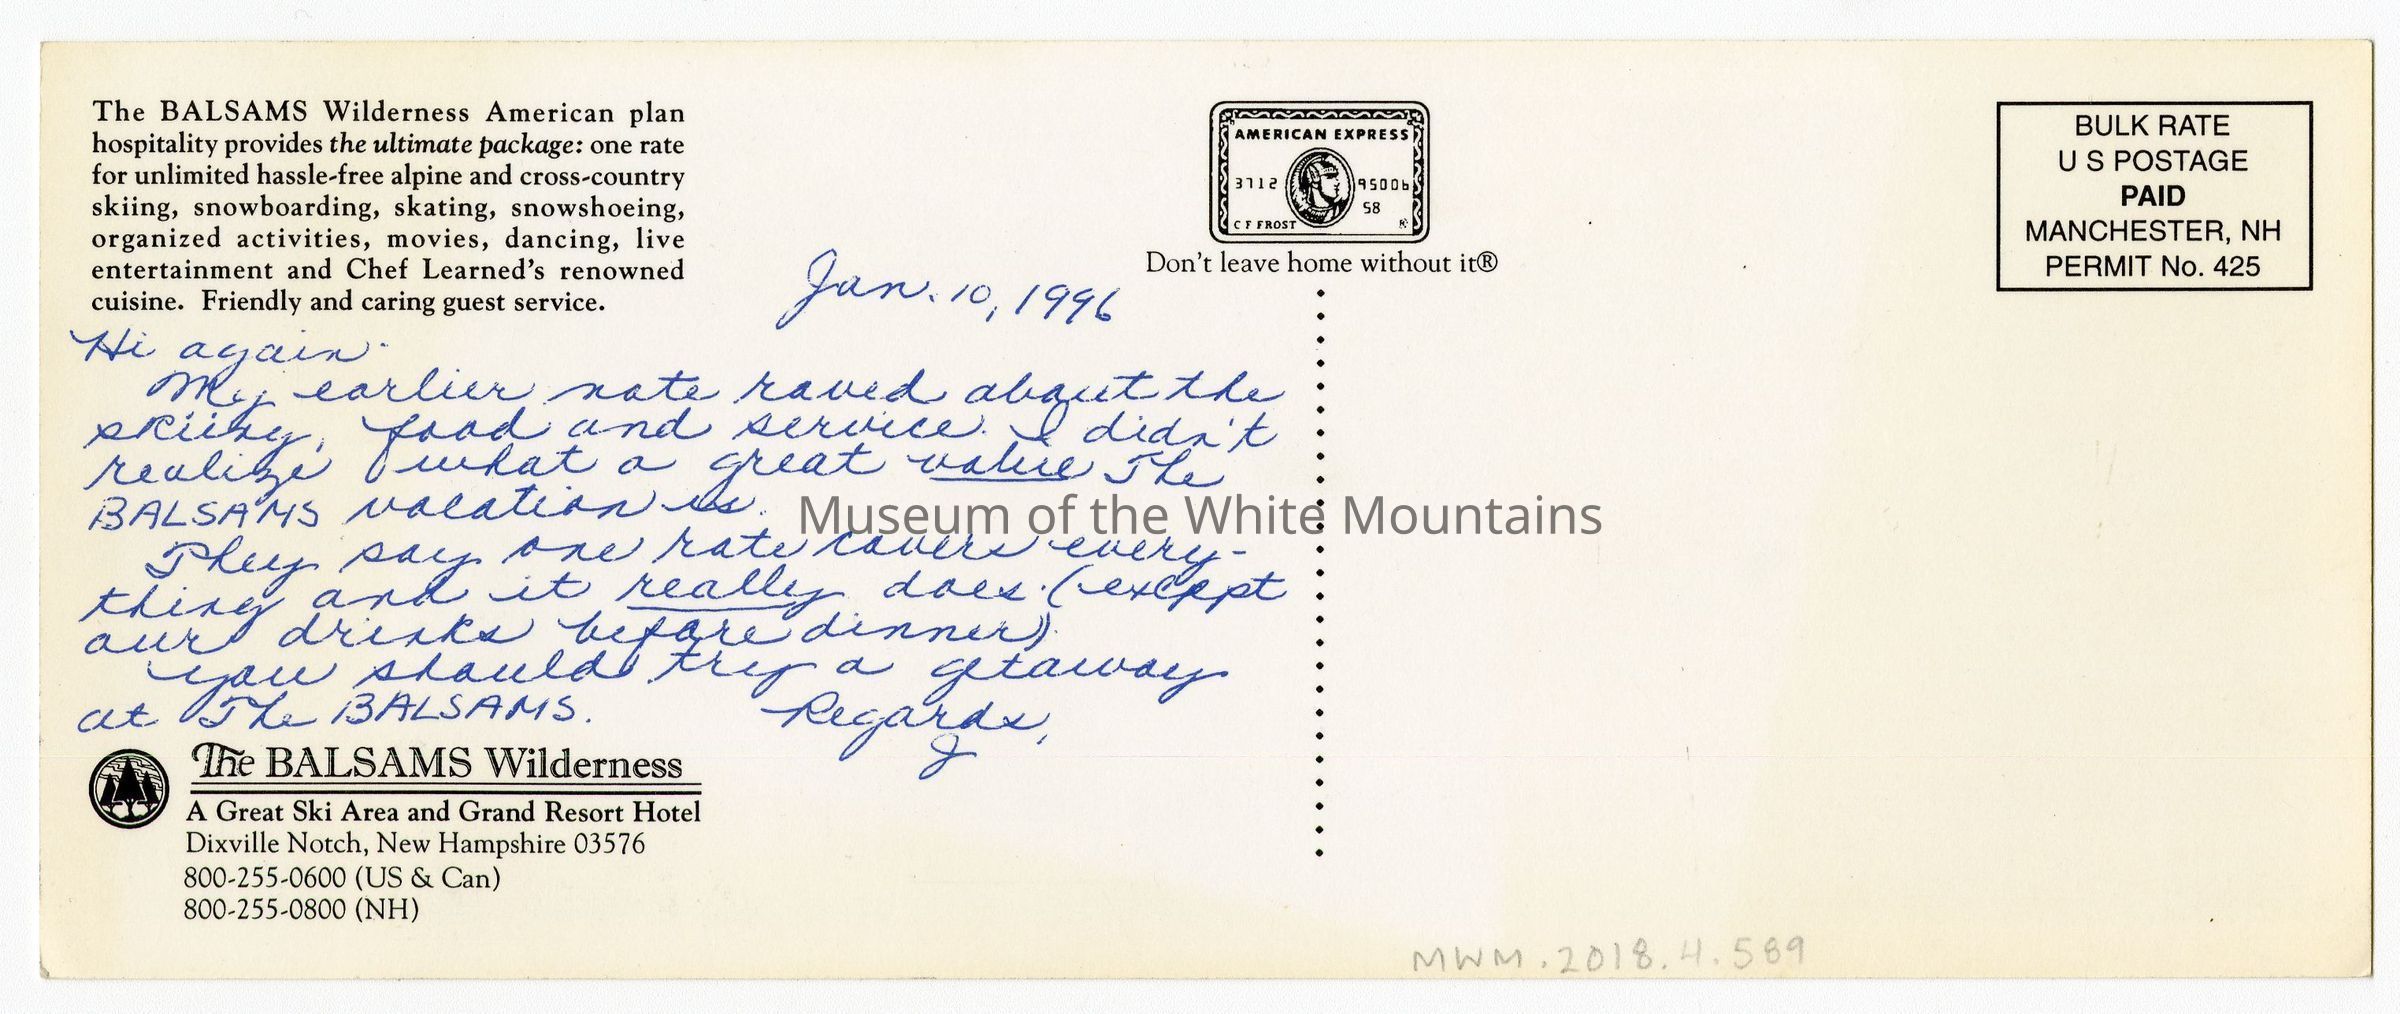 The BALSAMS Wilderness American plan
hospitality provides the ultimate package: one rate
for unlimited hassle-free alpine and cross-country
skiing, snowboarding, skating, snowshoeing,
organized activities, movies, dancing, live
entertainment and Chef Learned's renowned
cuisine. Friendly and caring guest service.
Jan. 10, 1996
Hi again.
My earlier note raved about the
skiing, food and service. I didn't
realize what a great value The
BALSAMS vacation is.
They say one rate covers every-
thing and it really does. (except
our drinks before dinner).
You should try a getaway
at The BALSAMS.
Regards,
J
The BALSAMS Wilderness
A Great Ski Area and Grand Resort Hotel
Dixville Notch, New Hampshire 03576
800-255-0600 (US & Can)
800-255-0800 (NH)
AMERICAN EXPRESS
3712 95006
58
C F FROST
Don't leave home without it®
BULK RATE
U S POSTAGE
PAID
MANCHESTER, NH
PERMIT No. 425
Museum of the White Mountains
MWM.2018.4.589